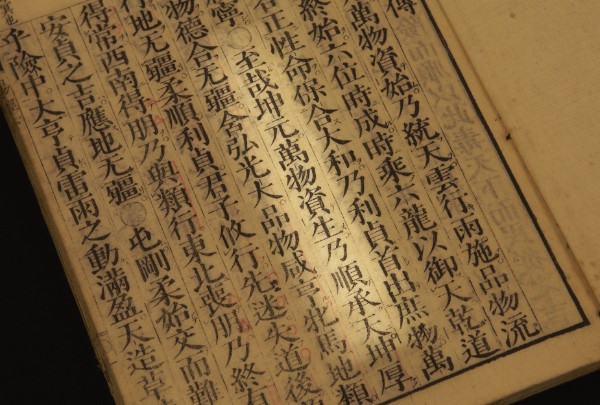 傳
萬物資始乃統天雲行雨施品物流
終始六位時成時乘六龍以御天乾道
各正性命保合大和乃利貞首出庶物萬
寧至哉坤元萬物資生乃順承天坤厚
物德合无疆含弘光大品物咸亨牝馬地類
行地无疆柔順利貞君子攸行先迷失道後
得常西南得朋乃與類行東北喪朋乃終有
安貞之吉應地无疆屯剛柔始交而難
乎險中大亨貞雷雨之動滿盈天造草